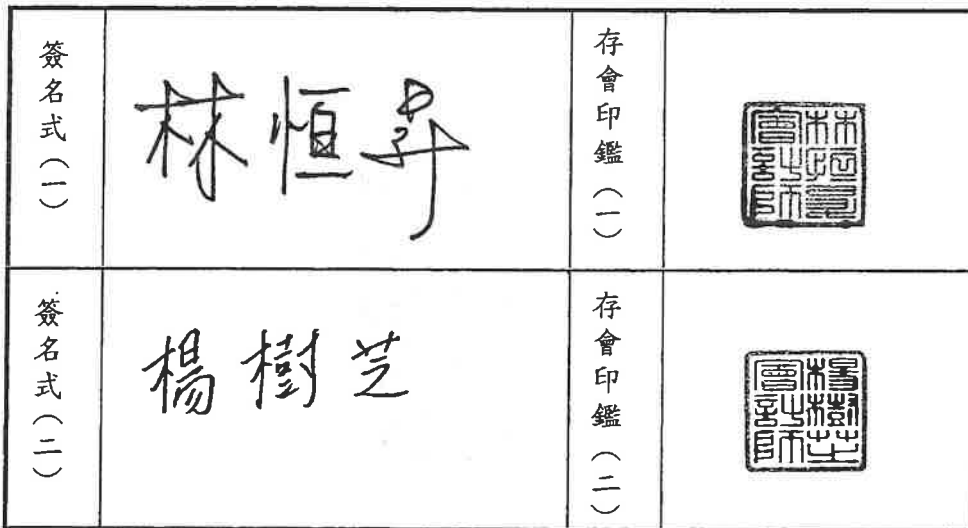 簽名式（一）
林恒昇
存會印鑑（一）
林恒昇會計師
簽名式（二）
楊樹芝
存會印鑑（二）
楊樹芝會計師